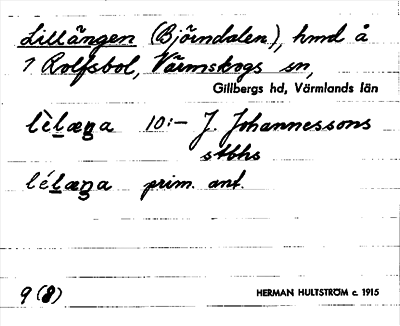 Lillängen (Björndalen), hmd å
1 Rolfsbol, Värmskogs sn,
Gillbergs hd, Värmlands län
lèlæŋa 10:- J. Johannessons
stbhs
lélæŋa prim. ant.
9 (8)
HERMAN HULTSTRÖM c. 1915